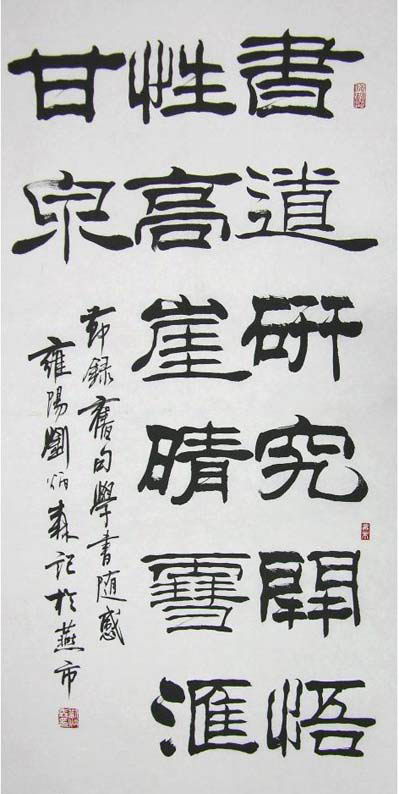 書道研究開悟
性高崖晴雪滙
甘泉
節錄舊句學書随感
雍陽劉炳森記於燕市